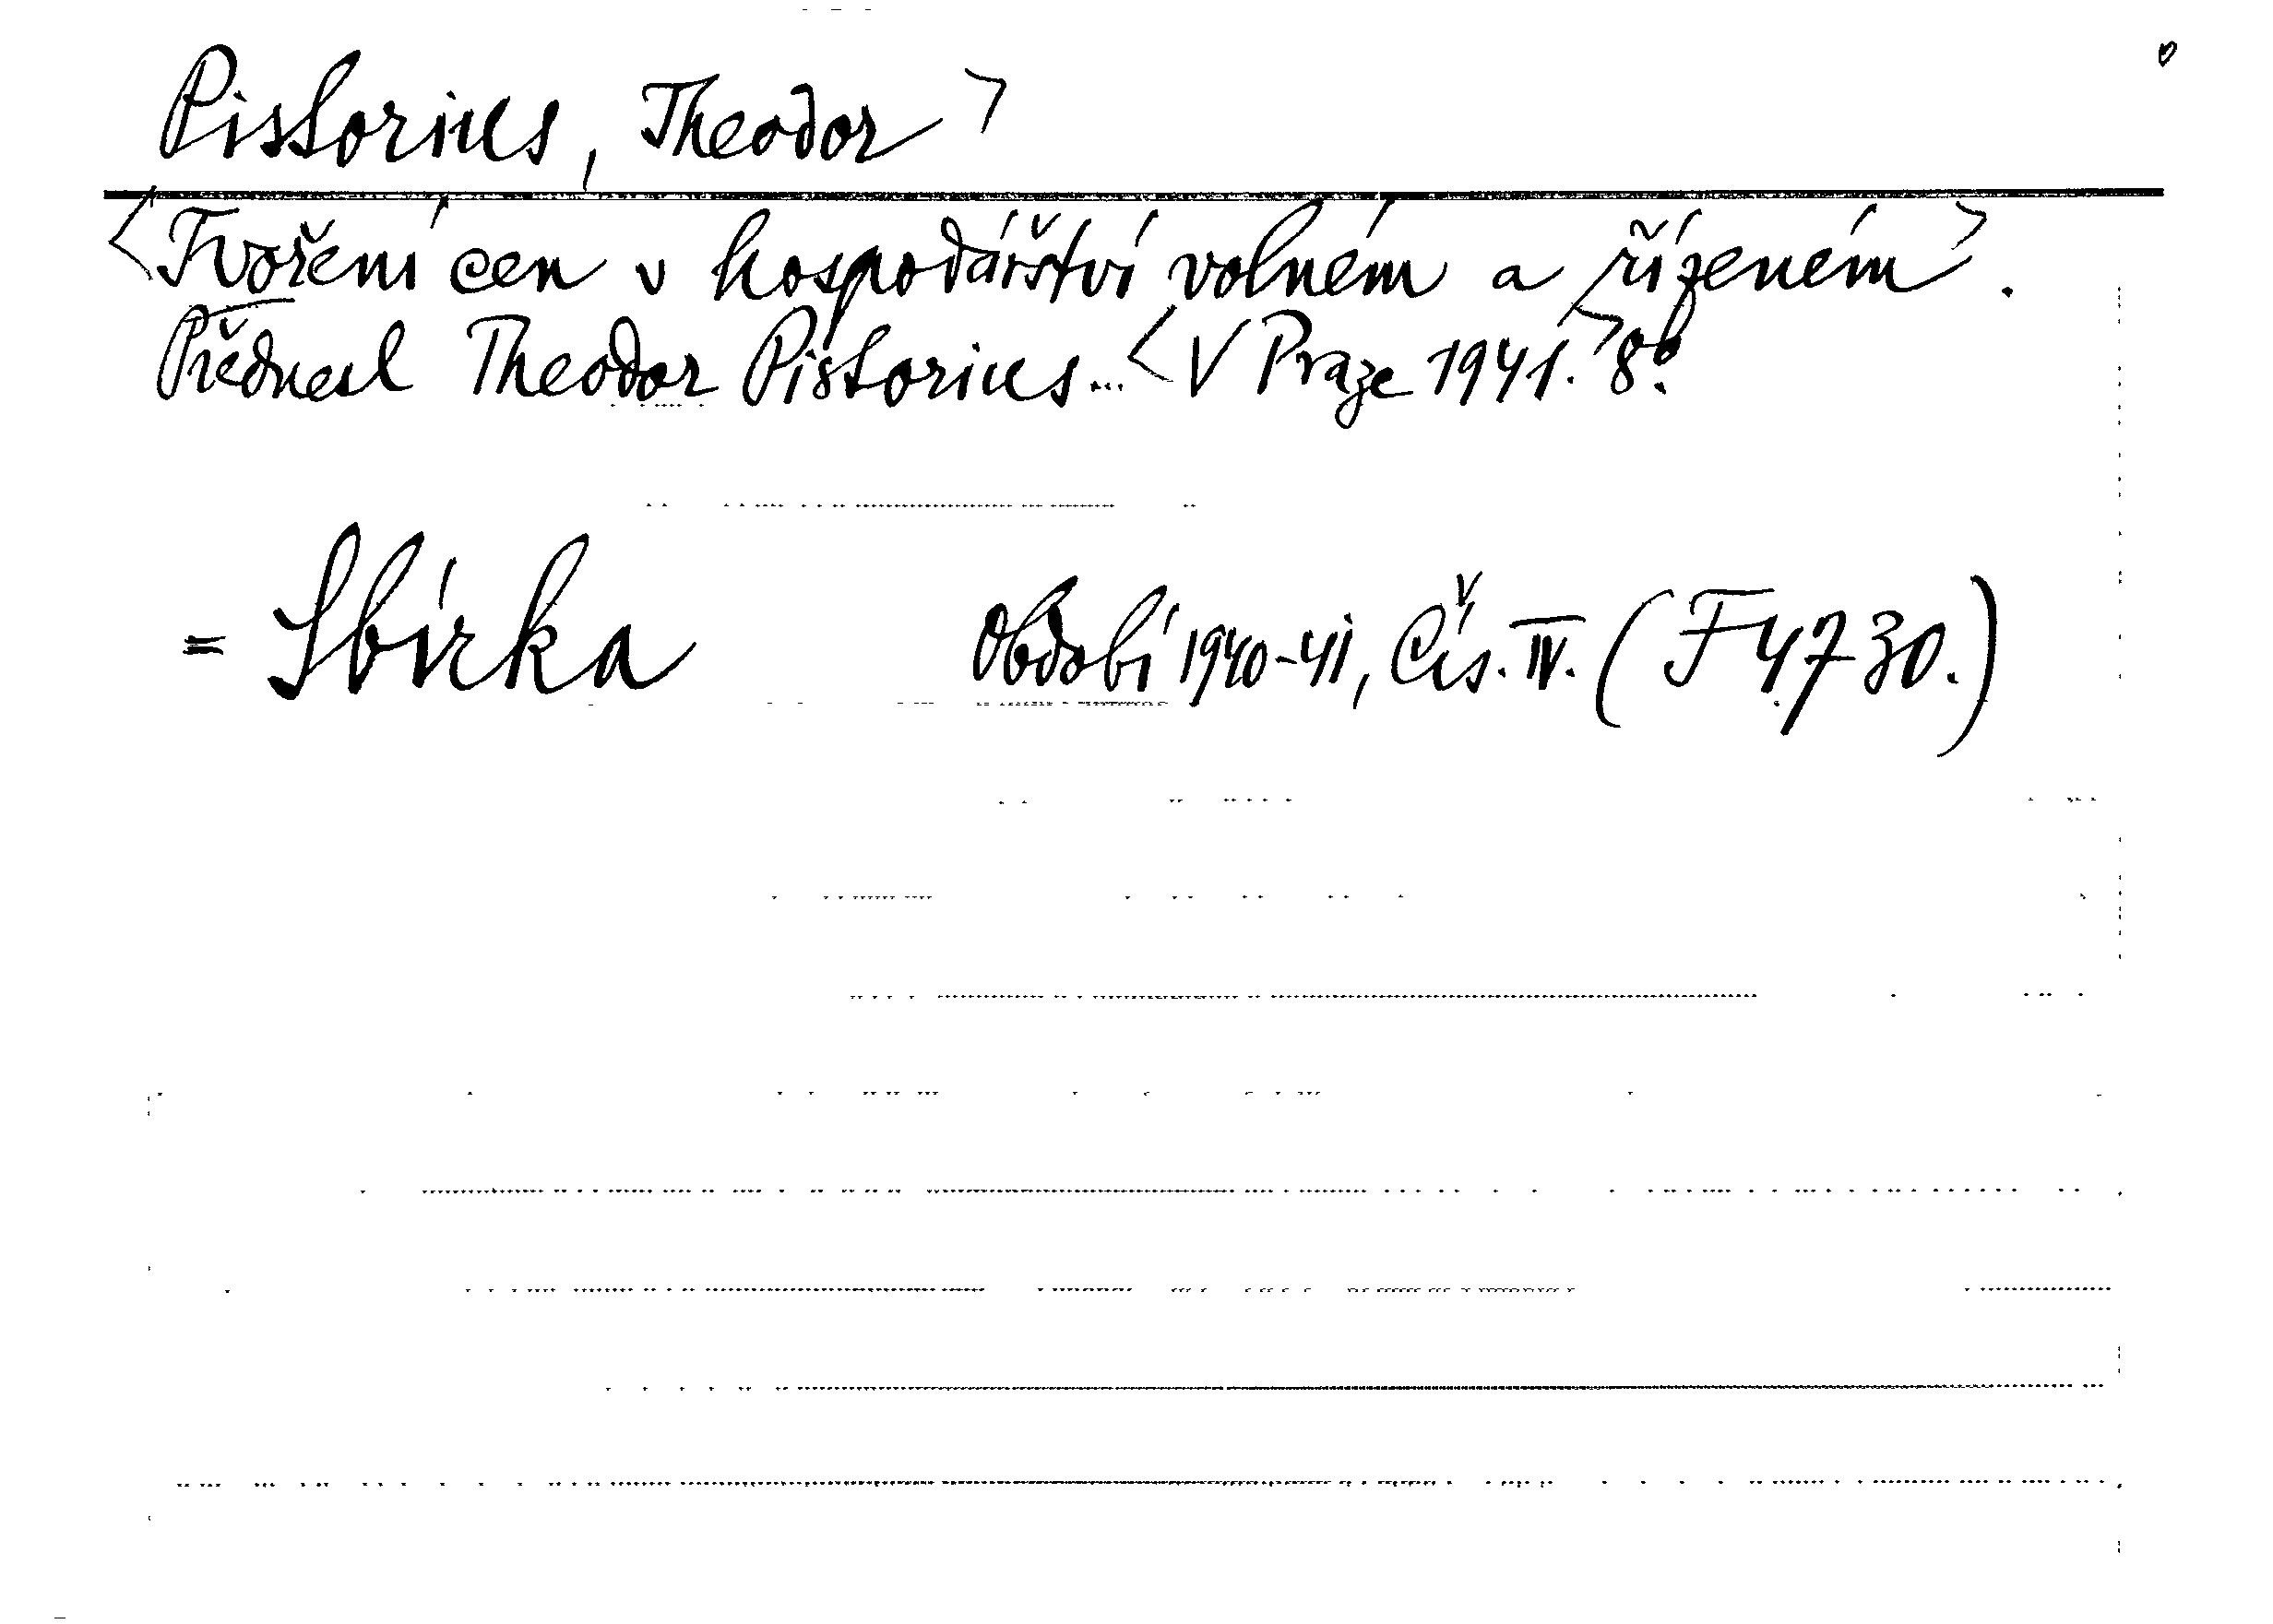 Pistorius, Theodor >
<Tvoření cen v hospodářství volném a řízeném>.
Přednesl Theodor Pistorius... <V Praze 1941.> 8°.
= Sbírka Období 1940-41, Čís. IV. (F 4730.)